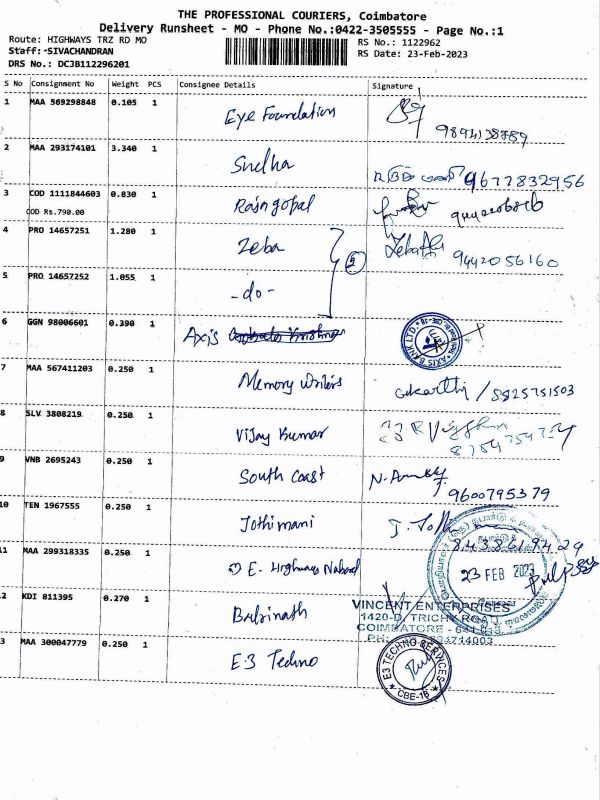 THE PROFESSIONAL COURIERS, Coimbatore
Delivery Runsheet - MO - Phone No.:0422-3505555 - Page No.:1
Route: HIGHWAYS TRZ RD MO
RS No.: 1122962
Staff:-SIVACHANDRAN
RS Date: 23-Feb-2023
DRS No.: DCJB112296201
S No Consignment No Weight PCS Consignee Details Signature
1 MAA 569298848 0.105 1 Eye Foundation
2 MAA 293174101 3.340 1 Sudha 9677832956
3 COD 1111844603 0.830 1 Rajngopal
COD Rs.790.00
4 PRO 14657251 1.280 1 Zeba 9442056160
5 PRO 14657252 1.055 1 -do- 2
6 GGN 98006601 0.390 1 Axis AXIS BANK LTD.
7 MAA 567411203 0.250 1 Memory Writers
8 SLV 3808219 0.250 1 Vijay Kumar
9 VNB 2695243 0.250 1 South Coast 9600795379
10 TEN 1967555 0.250 1 Jothimani 8438619429
11 MAA 299318335 0.250 1 D E. Highways 23 FEB 2023
2 KDI 811395 0.270 1
VINCENT ENTERPRISES
1420-D, TRICHY ROAD,
COIMBATORE
3 MAA 300047779 0.250 1 E3 Techno E3 TECHNO SERVICES CBE-18